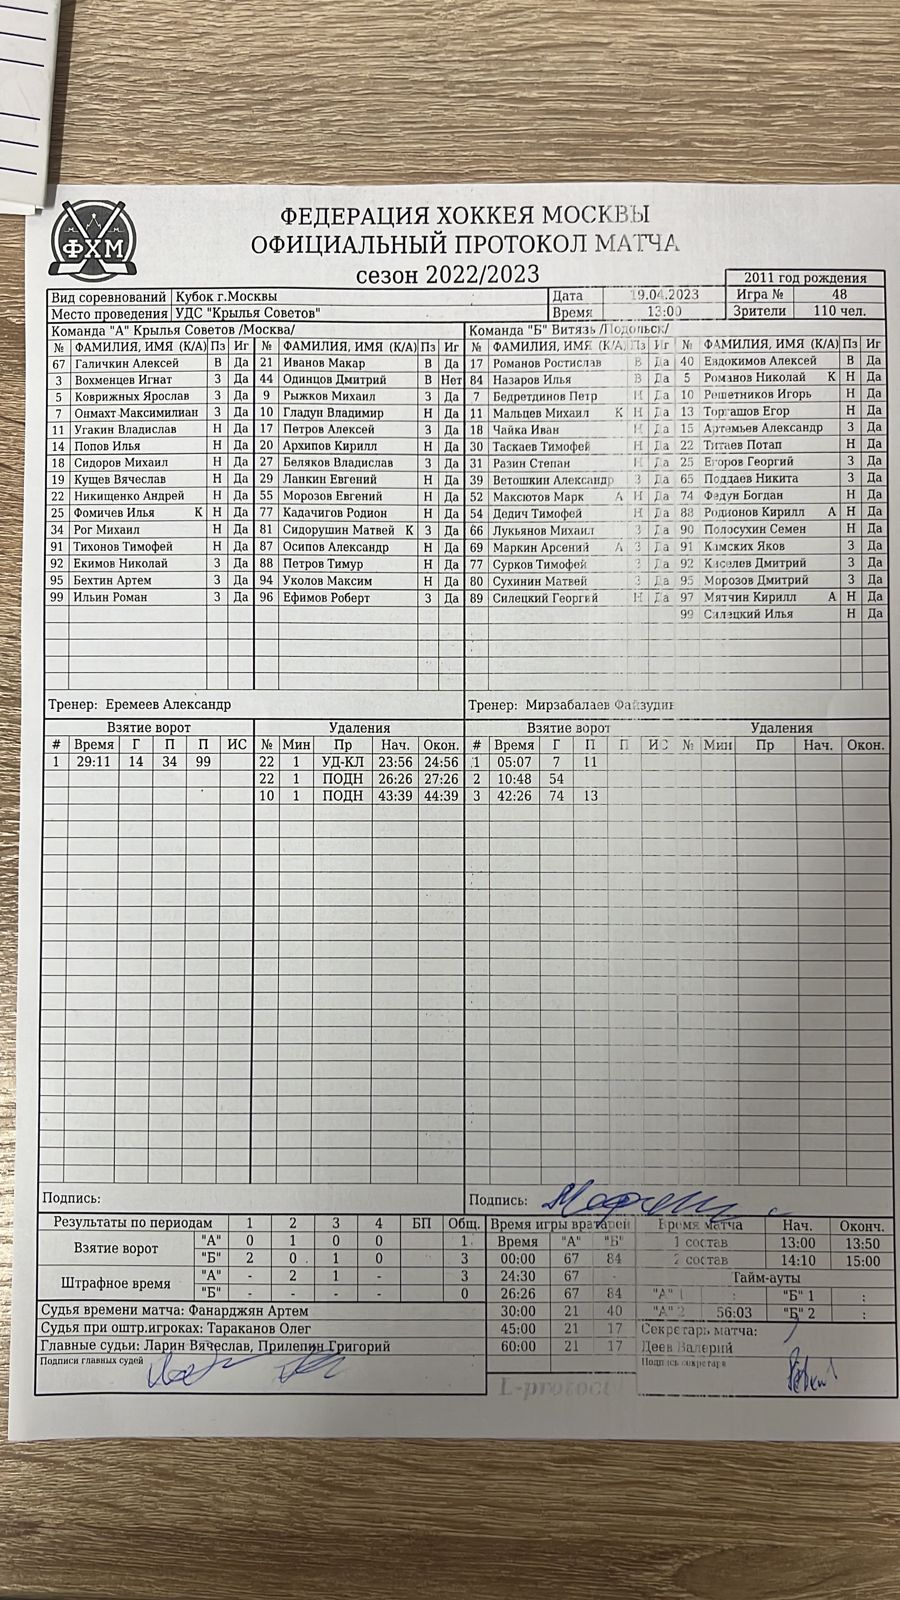 ФХМ
ФЕДЕРАЦИЯ ХОККЕЯ МОСКВЫ
ОФИЦИАЛЬНЫЙ ПРОТОКОЛ МАТЧА
сезон 2022/2023
2011 год рождения
Вид соревнований Кубок г.Москвы Дата 19.04.2023 Игра № 48
Место проведения УДС "Крылья Советов" Время 13:00 Зрители 110 чел.
Команда "А" Крылья Советов /Москва/ Команда "Б" Витязь /Подольск/
№ ФАМИЛИЯ, ИМЯ (К/А) Пз Иг № ФАМИЛИЯ, ИМЯ (К/А) Пз Иг № ФАМИЛИЯ, ИМЯ (К/А) Пз Иг № ФАМИЛИЯ, ИМЯ (К/А) Пз Иг
67 Галичкин Алексей В Да 21 Иванов Макар В Да 17 Романов Ростислав В Да 40 Евдокимов Алексей В Да
3 Вохменцев Игнат З Да 44 Одинцов Дмитрий В Нет 84 Назаров Илья В Да 5 Романов Николай К Н Да
5 Коврижных Ярослав З Да 9 Рыжков Михаил З Да 7 Бедретдинов Петр Н Да 10 Решетников Игорь Н Да
7 Онмахт Максимилиан З Да 10 Гладун Владимир Н Да 11 Мальцев Михаил К Н Да 13 Торгашов Егор Н Да
11 Угакин Владислав Н Да 17 Петров Алексей З Да 18 Чайка Иван Н Да 15 Артемьев Александр З Да
14 Попов Илья Н Да 20 Архипов Кирилл Н Да 30 Таскаев Тимофей Н Да 22 Титаев Потап Н Да
18 Сидоров Михаил Н Да 27 Беляков Владислав З Да 31 Разин Степан Н Да 25 Егоров Георгий З Да
19 Кущев Вячеслав Н Да 29 Ланкин Евгений Н Да 39 Ветошкин Александр З Да 65 Поддаев Никита З Да
22 Никищенко Андрей Н Да 55 Морозов Евгений Н Да 52 Максютов Марк А Н Да 74 Федун Богдан Н Да
25 Фомичев Илья К Н Да 77 Кадачигов Родион Н Да 54 Дедич Тимофей Н Да 88 Родионов Кирилл А Н Да
34 Рог Михаил Н Да 81 Сидорушин Матвей К З Да 66 Лукьянов Михаил З Да 90 Полосухин Семен Н Да
91 Тихонов Тимофей Н Да 87 Осипов Александр Н Да 69 Маркин Арсений А З Да 91 Камских Яков З Да
92 Екимов Николай З Да 88 Петров Тимур Н Да 77 Сурков Тимофей З Да 92 Киселев Дмитрий З Да
95 Бехтин Артем З Да 94 Уколов Максим Н Да 80 Сухинин Матвей З Да 95 Морозов Дмитрий З Да
99 Ильин Роман З Да 96 Ефимов Роберт З Да 89 Силецкий Георгий Н Да 97 Мятчин Кирилл А Н Да
99 Силецкий Илья Н Да
Тренер: Еремеев Александр Тренер: Мирзабалаев Файзудин
Взятие ворот Удаления Взятие ворот Удаления
# Время Г П П ИС № Мин Пр Нач. Окон. # Время Г П П ИС № Мин Пр Нач. Окон.
1 29:11 14 34 99 22 1 УД-КЛ 23:56 24:56 1 05:07 7 11
22 1 ПОДН 26:26 27:26 2 10:48 54
10 1 ПОДН 43:39 44:39 3 42:26 74 13
Подпись: Подпись:
Результаты по периодам 1 2 3 4 БП Общ. Время игры вратарей Время матча Нач. Оконч.
Взятие ворот "А" 0 1 0 0 1 Время "А" "Б" 1 состав 13:00 13:50
"Б" 2 0 1 0 3 00:00 67 84 2 состав 14:10 15:00
Штрафное время "А" - 2 1 - 3 24:30 67 - Тайм-ауты
"Б" - - - - 0 26:26 67 84 "А" 1 : "Б" 1 :
Судья времени матча: Фанарджян Артем 30:00 21 40 "А" 2 56:03 "Б" 2 :
Судья при оштр.игроках: Тараканов Олег 45:00 21 17 Секретарь матча:
Главные судьи: Ларин Вячеслав, Прилепин Григорий 60:00 21 17 Деев Валерий
Подписи главных судей Подпись секретаря
L-protocol